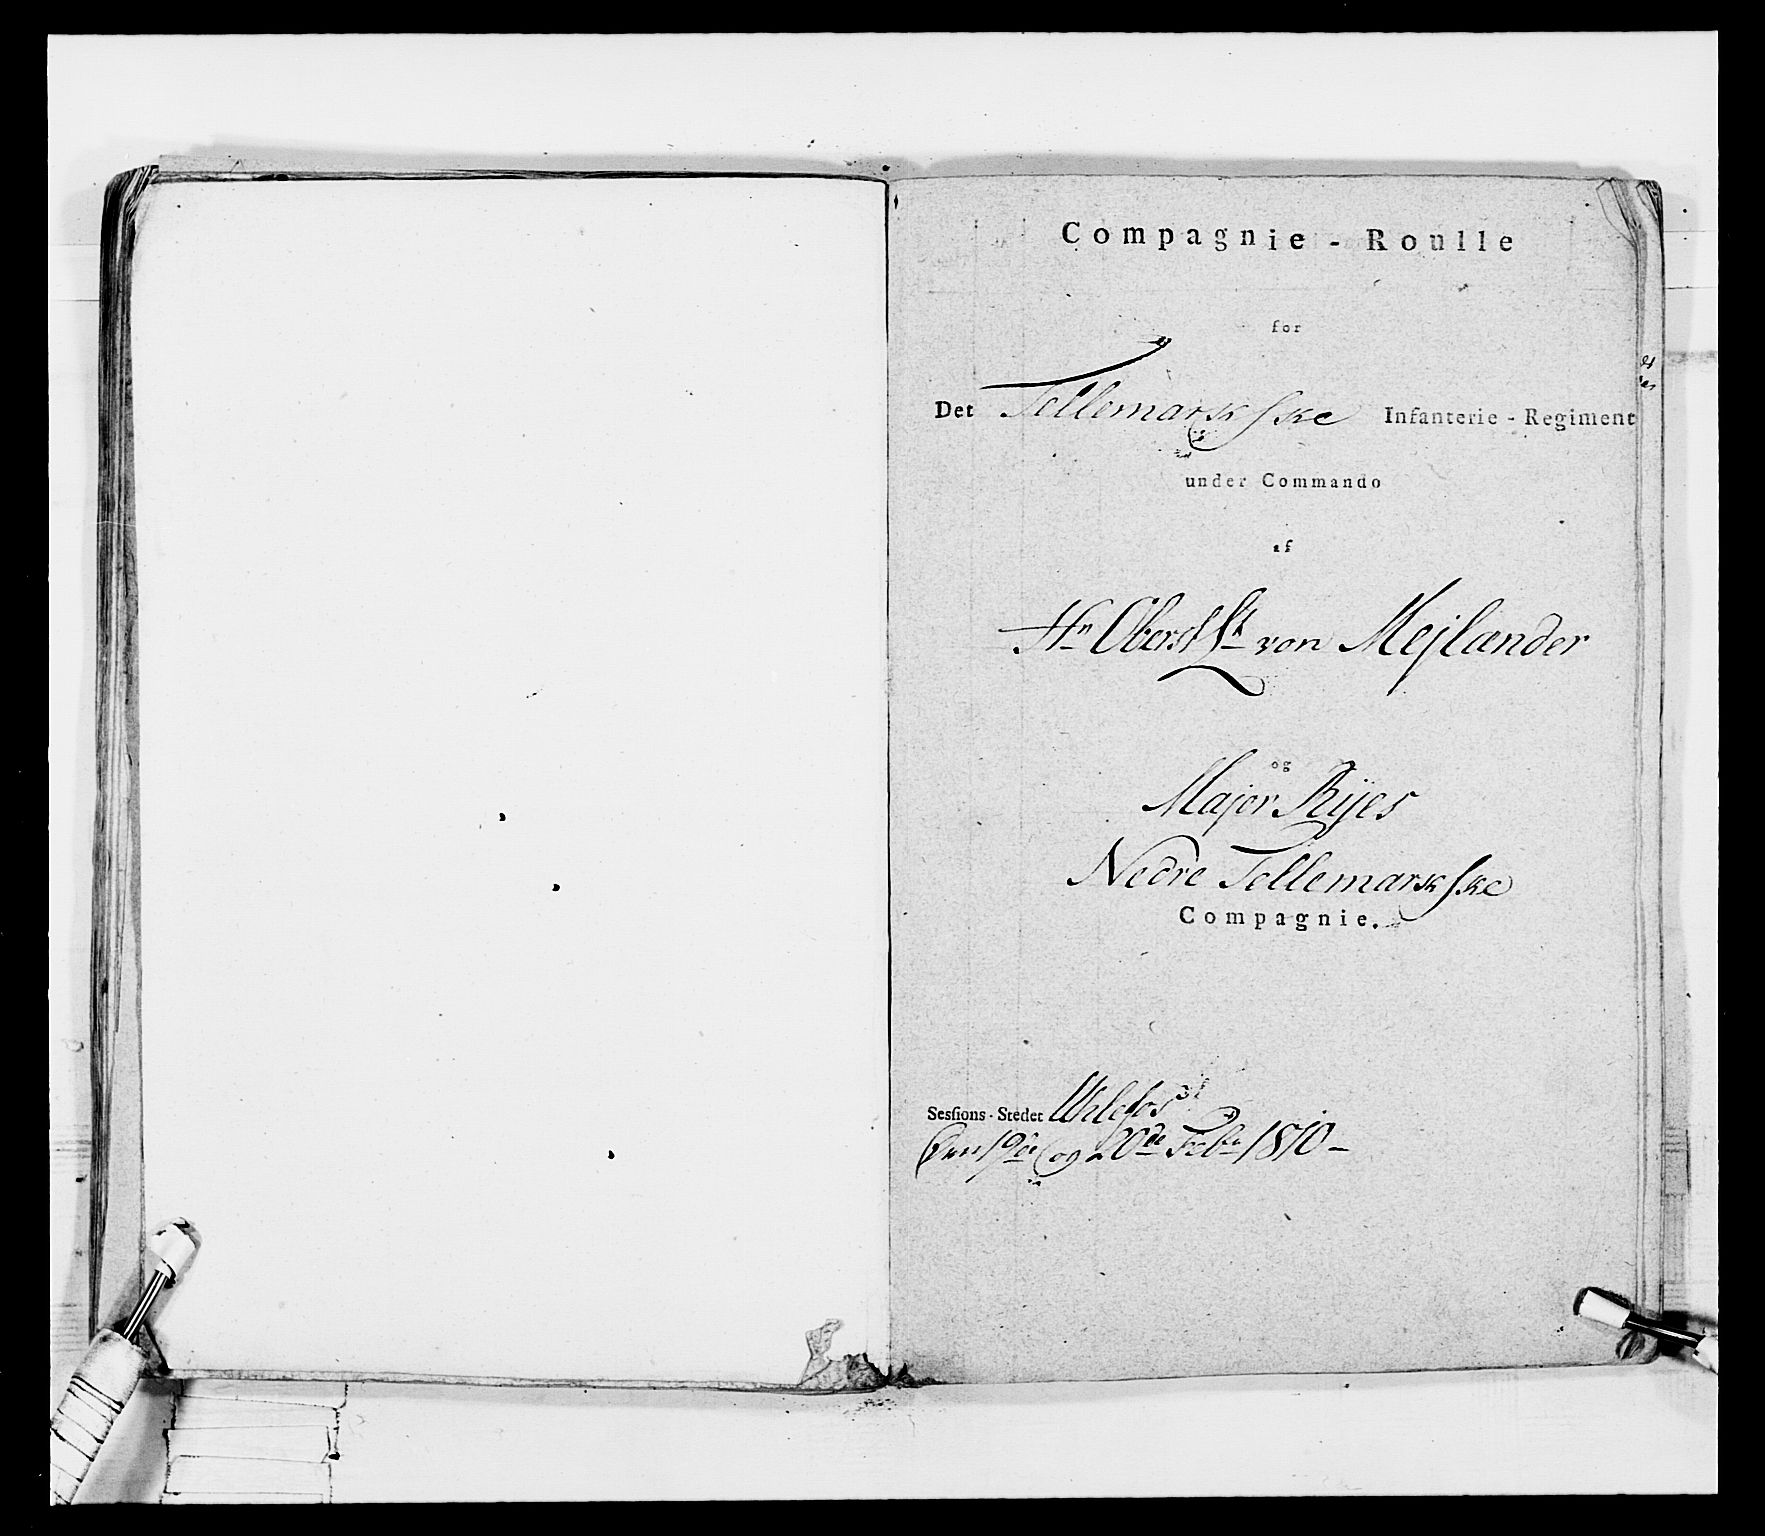 Compagnie - Roulle
for
Det Tellemarkske Infanterie - Regiment
under Commando
af
Hn Oberst Lt von Mejlænder
og
Major Rijes
Nedre Tellemarkske
Compagnie.
Sessions-Stedet Ulefos
Den 19de og 20de Febr 1810 -